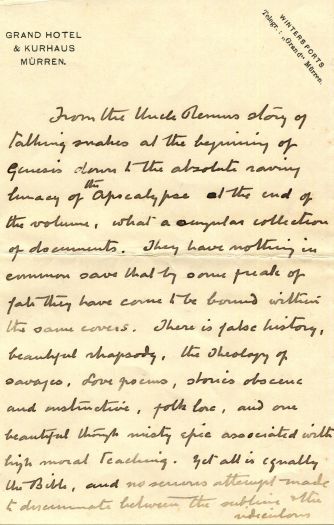 GRAND HOTEL
& KURHAUS
MÜRREN.
WINTERSPORTS
Telegr.: „Grand“ Mürren.
From the Uncle Remus story of
talking snakes at the beginning of
Genesis down to the absolute raving
lunacy of the Apocalypse at the end of
the volume, what a singular collection
of documents. They have nothing in
common save that by some freak of
fate they have come to be bound within
the same covers. There is false history,
beautiful rhapsody, the theology of
savages, love poems, stories obscene
and instructive, folk lore, and one
beautiful though misty epic associated with
high moral teaching. Yet all is equally
the Bible, and no serious attempt made
to discriminate between the sublime & the
ridiculous